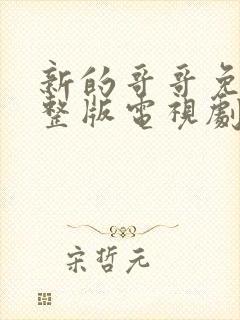 新的哥哥免
整版電視劇
宋哲元